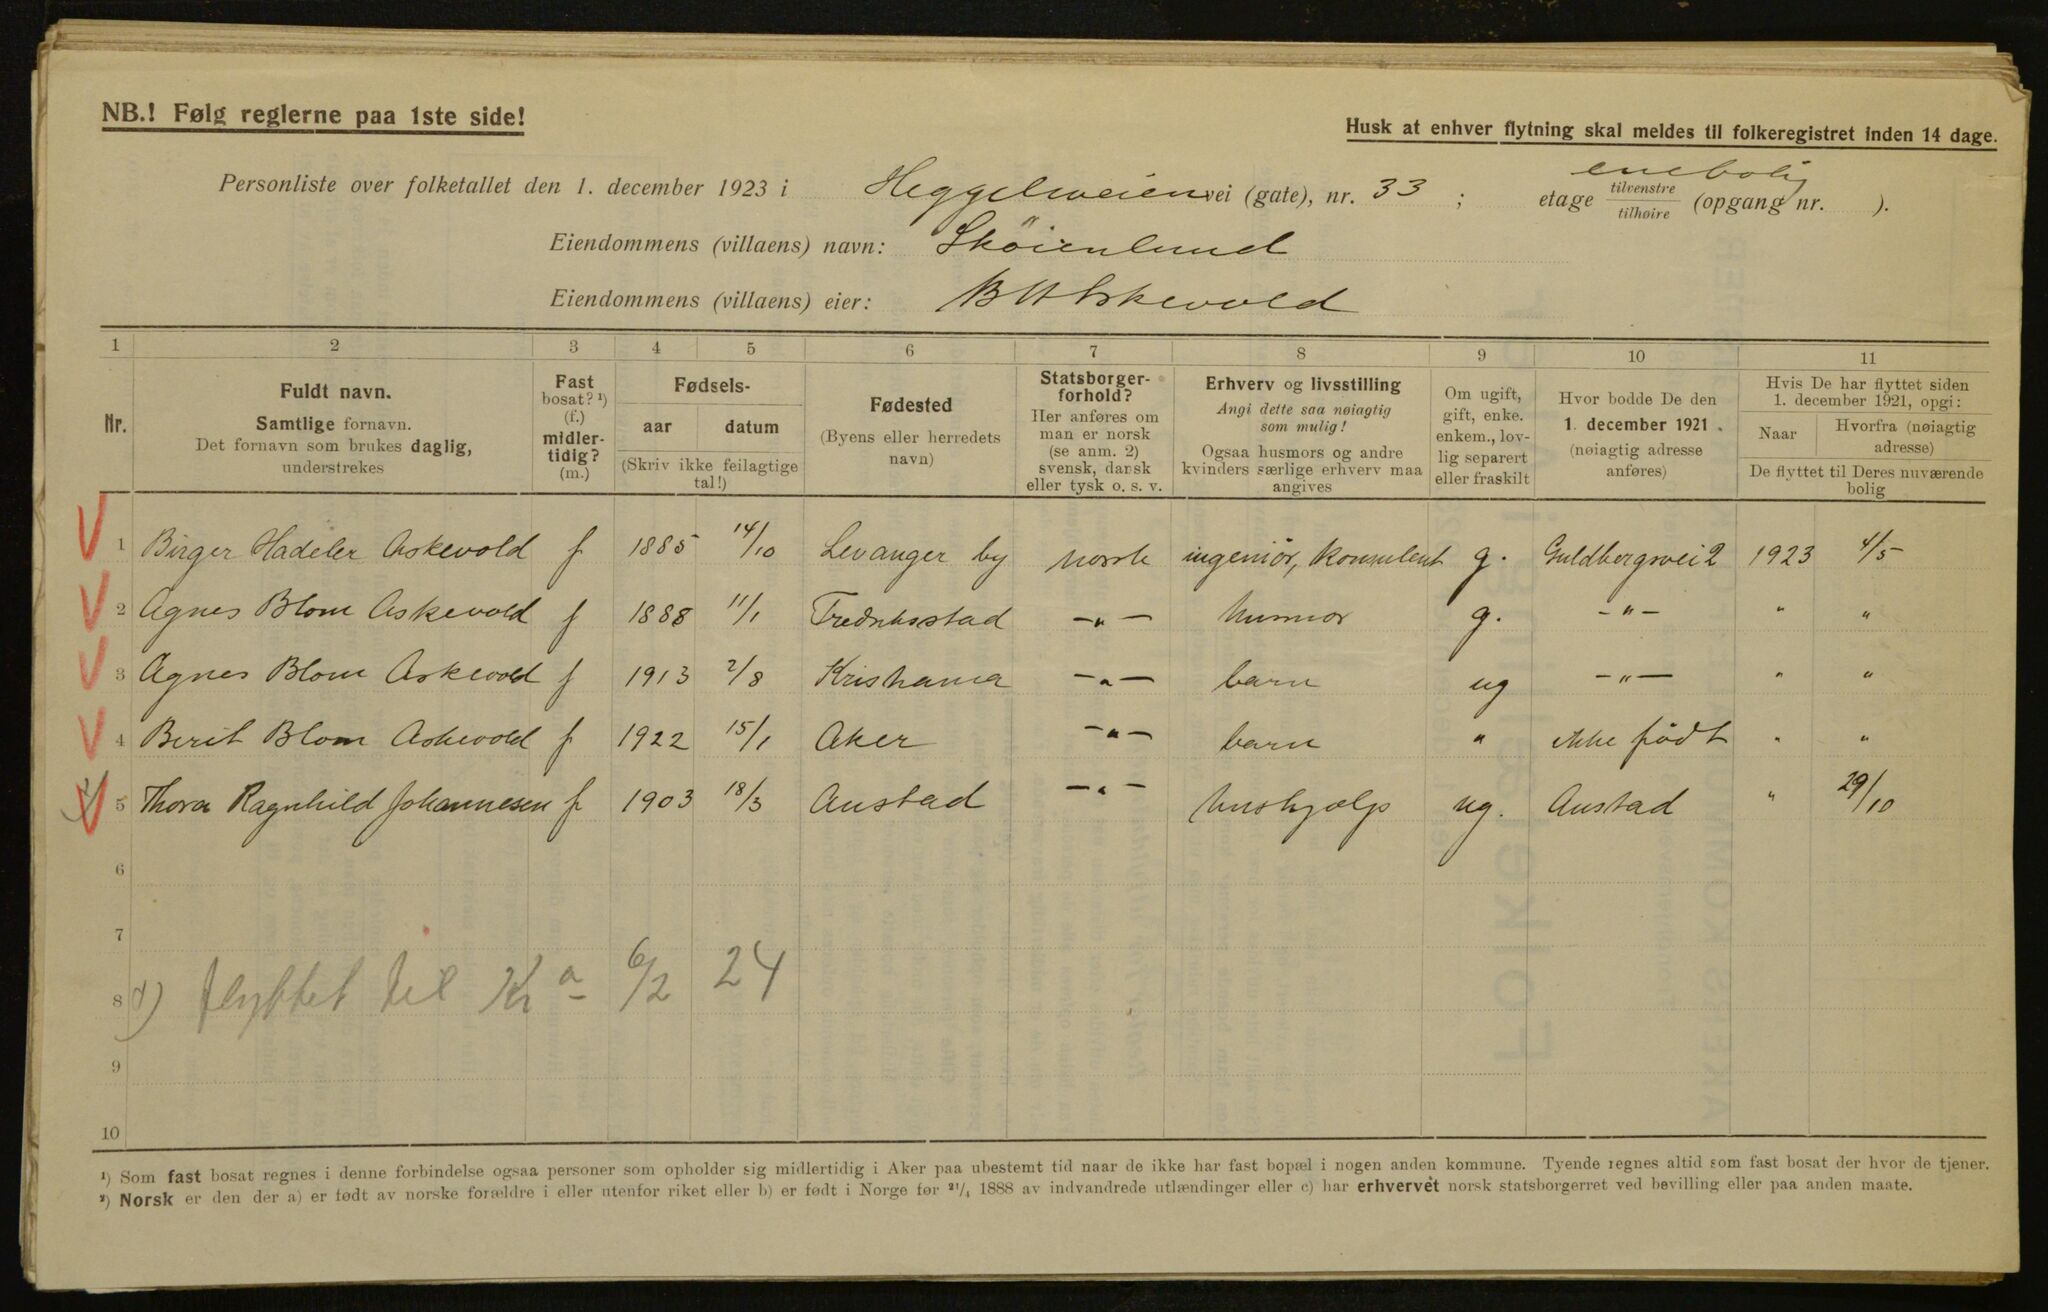 NB.! Følg reglerne paa 1ste side!
Husk at enhver flytning skal meldes til folkeregistret inden 14 dage.
Personliste over folketallet den 1. december 1923 i Heggelieveien vei (gate), nr. 33 ; etage tilvenstre tilhøire (opgang nr. ).
enebolig
Eiendommens (villaens) navn: Sköienlund
Eiendommens (villaens) eier: B H Askevold
1 2 3 4 5 6 7 8 9 10 11
Nr.
Fuldt navn.
Samtlige fornavn.
Det fornavn som brukes daglig,
understrekes
Fast
bosat? ¹)
(f.)
midler-
tidig?
(m.)
Fødsels-
aar datum
(Skriv ikke feilagtige
tal!)
Fødested
(Byens eller herredets
navn)
Statsborger-
forhold?
Her anføres om
man er norsk
(se anm. 2)
svensk, dansk
eller tysk o. s. v.
Erhverv og livsstilling
Angi dette saa nøiagtig
som mulig!
Ogsaa husmors og andre
kvinders særlige erhverv maa
angives
Om ugift,
gift, enke.
enkem., lov-
lig separert
eller fraskilt
Hvor bodde De den
1. december 1921.
(nøiagtig adresse
anføres)
Hvis De har flyttet siden
1. december 1921, opgi:
Naar Hvorfra (nøiagtig
adresse)
De flyttet til Deres nuværende
bolig
1 Birger Hadeler Askevold f 1885 14/10 Levanger by norsk ingeniör, konsulent g. Guldbergsvei 2 1923 4/5
2 Agnes Blom Askevold f 1888 11/1 Fredriksstad —"— husmor g. —"— " "
3 Agnes Blom Askevold f 1913 2/8 Kristiania —"— barn ug —"— " "
4 Berit Blom Askevold f 1922 15/1 Aker —"— barn " ikke född " "
5 Thora Ragnhild Johannesen f 1903 18/3 Onstad —"— hushjælp ug. Onstad " 29/10
6
7
8 flyttet til Kra 6/2 24
9
10
¹) Som fast bosat regnes i denne forbindelse ogsaa personer som opholder sig midlertidig i Aker paa ubestemt tid naar de ikke har fast bopæl i nogen anden kommune. Tyende regnes altid som fast bosat der hvor de tjener.
²) Norsk er den der a) er født av norske forældre i eller utenfor riket eller b) er født i Norge før ²¹/₄ 1888 av indvandrede utlændinger eller c) har erhvervet norsk statsborgerret ved bevilling eller paa anden maate.